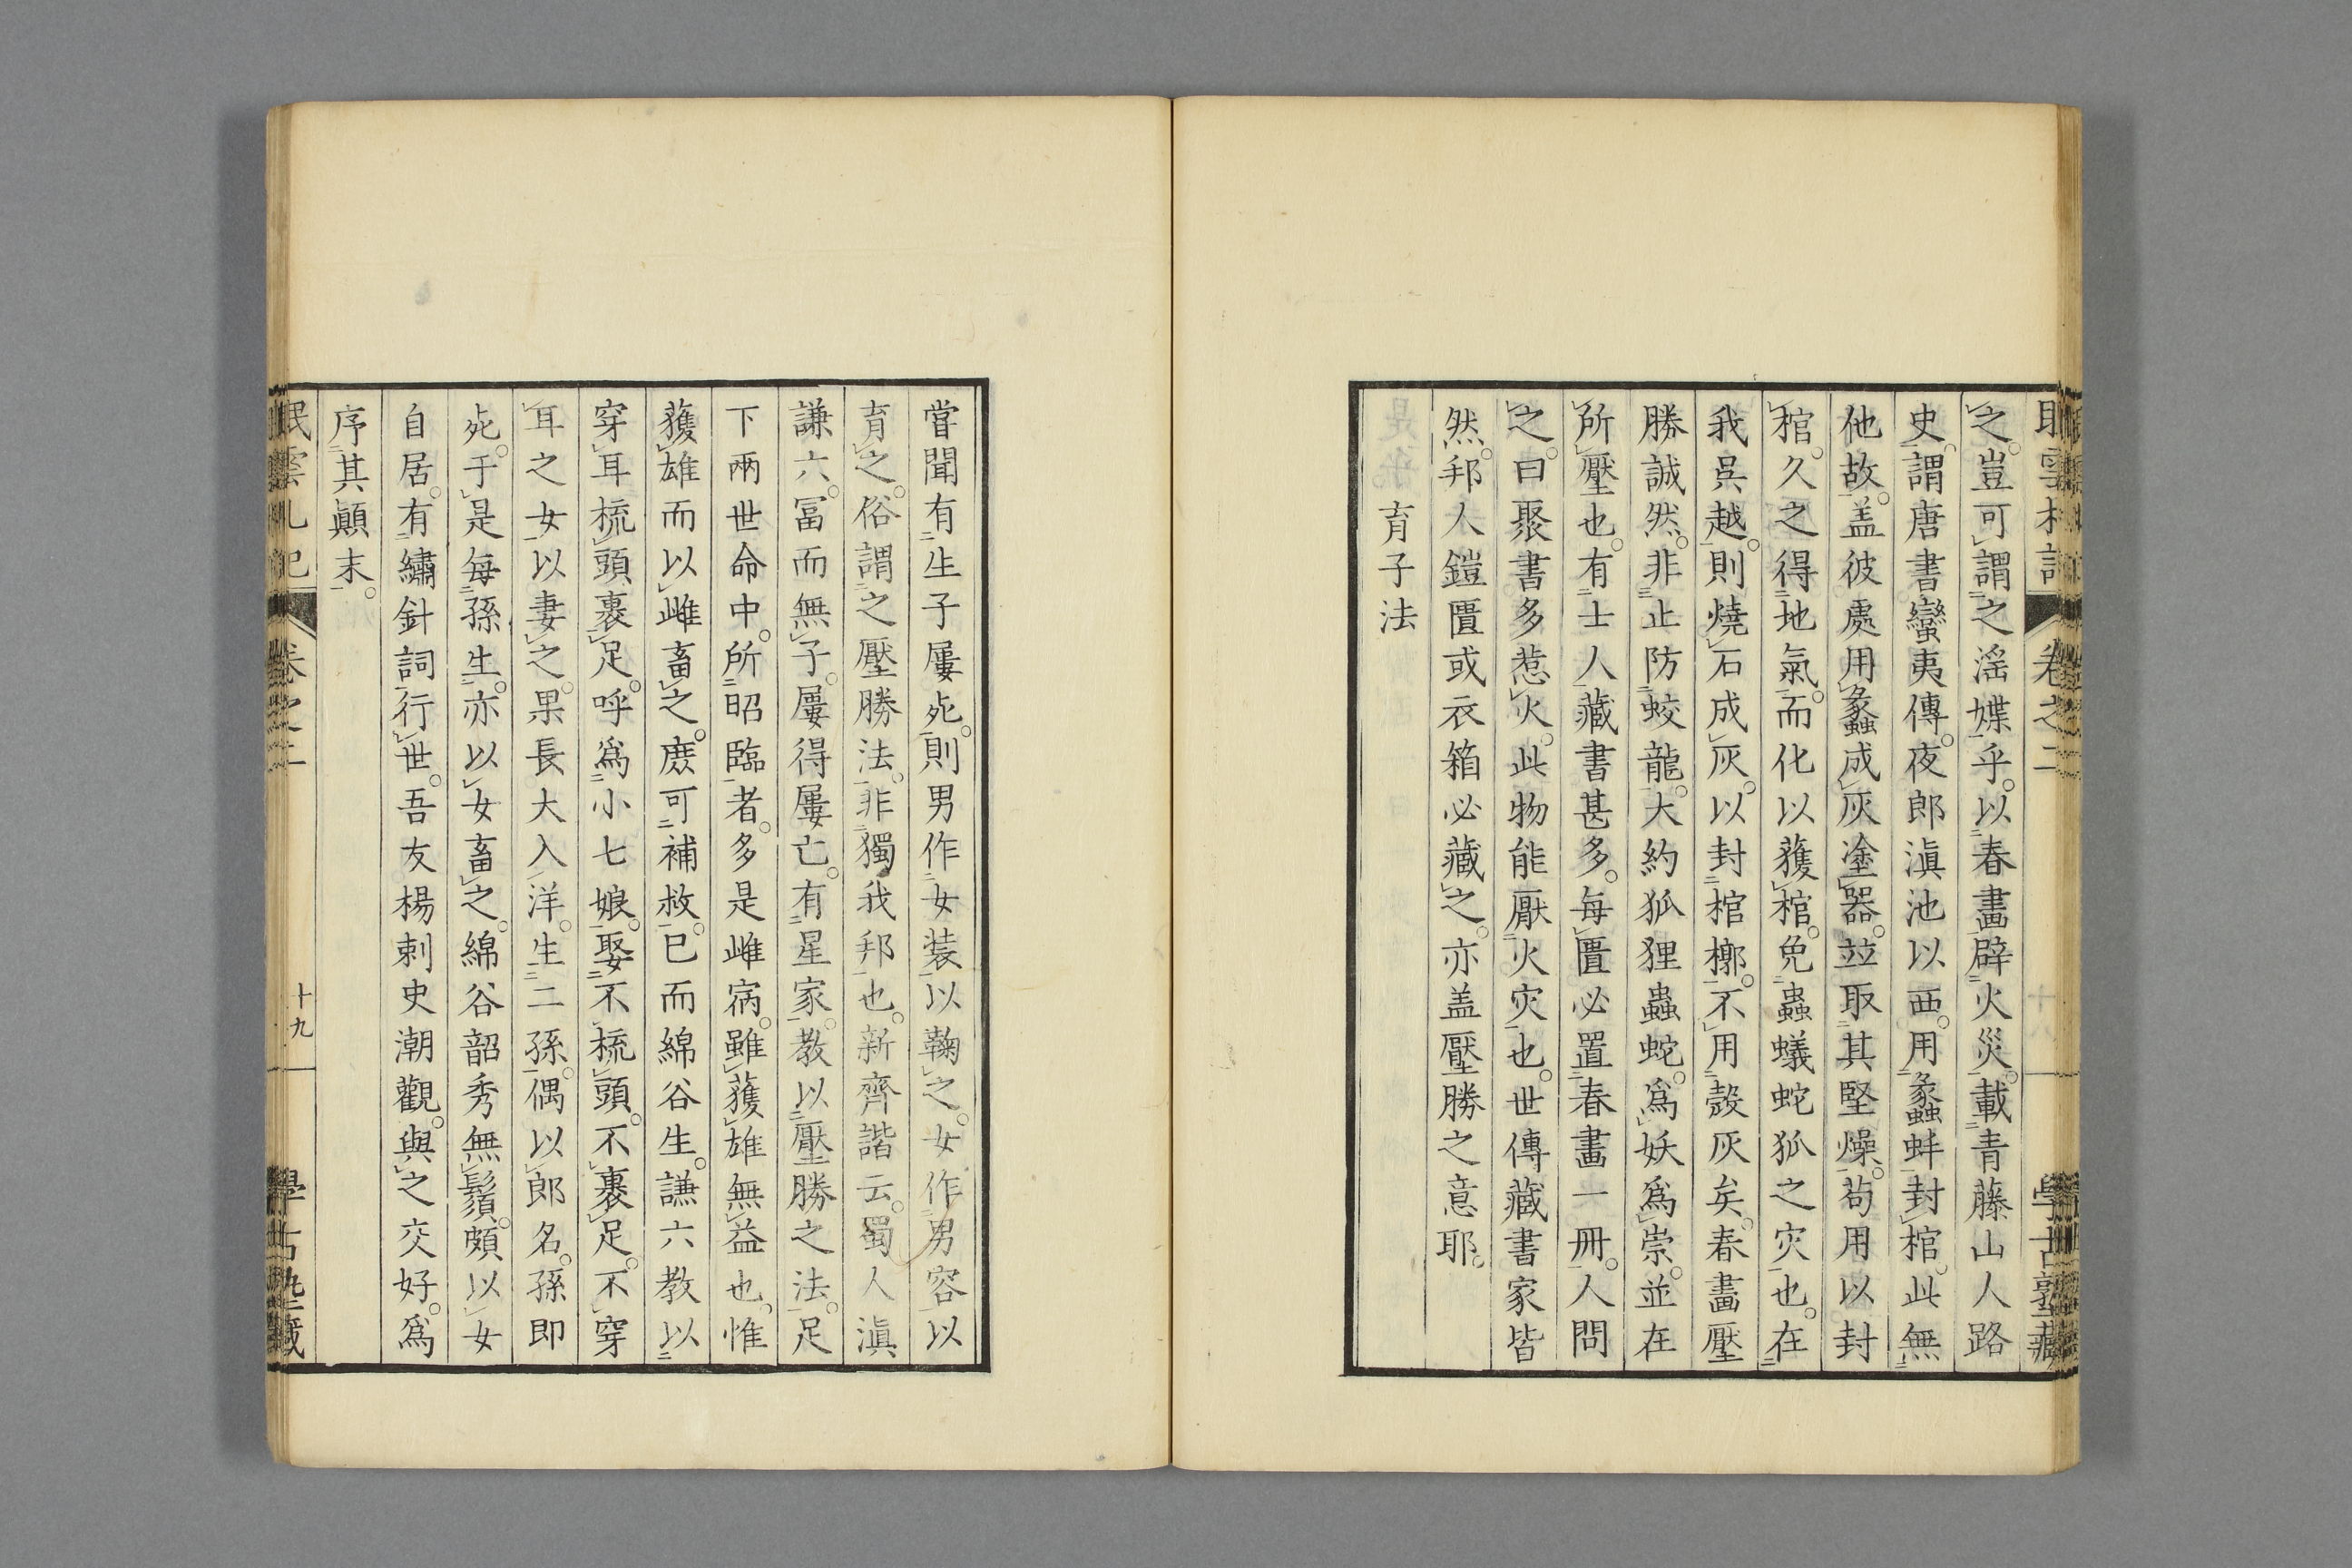 之。豈可謂之淫媟乎。以春畫辟火災。載青藤山人路
史。謂唐書蠻夷傳。夜郎滇池以西。用蠡蚌封棺。此無
他故。盖彼處用蠡成灰塗器。並取其堅燥。苟用以封
棺。久之得地氣。而化以䕶棺。免蟲蟻蛇狐之灾也。在
我吳越。則燒石成灰。以封棺槨。不用殼灰矣。春畫壓
勝誠然。非止防蛟龍。大約狐狸蟲蛇。爲妖爲崇。並在
所壓也。有士人藏書甚多。每匱必置春畫一冊。人問
之。曰聚書多惹火。此物能厭火灾也。世傳藏書家皆
然。邦人鎧匱或衣箱必藏之。亦盖壓勝之意耶。
育子法
嘗聞有生子屢死。則男作女裝以鞠之。女作男容以
育之。俗謂之壓勝法。非獨我邦也。新齊諧云。蜀人滇
謙六。冨而無子。屢得屢亡。有星家教以壓勝之法。足
下兩世命中。所昭臨者。多是雌宿。雖䕶雄無益也。惟
䕶雄而以雌畜之。庶可補救。已而綿谷生。謙六教以
穿耳梳頭裹足。呼爲小七娘。娶不梳頭。不裹足。不穿
耳之女以妻之。果長大入洋。生二孫。偶以郎名。孫即
死。于是每孫生。亦以女畜之。綿谷韶秀無鬚。頗以女
自居。有繡針詞行世。吾友楊刺史潮觀。與之交好。爲
序其顛末。
眠雲札記
卷之二
十九
學古塾藏